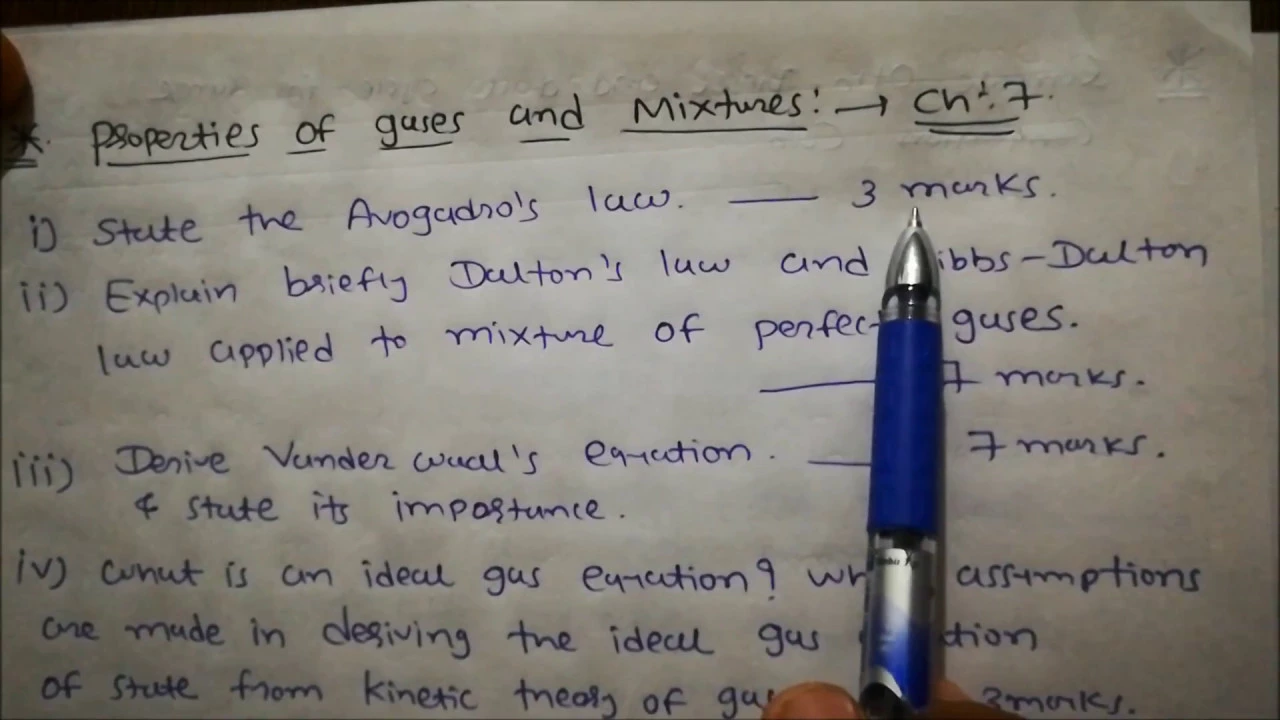 * Properties of gases and Mixtures: → Ch: 7.
i) State the Avogadro's law. — 3 marks.
ii) Explain briefly Dalton's law and ibbs-Dalton
law applied to mixture of perfect gases.
— 7 marks.
iii) Derive Vander waal's equation. — 7 marks.
& state its importance.
iv) What is an ideal gas equation? assumptions
are made in deriving the ideal gas
of state from kinetic theory of 3 marks.